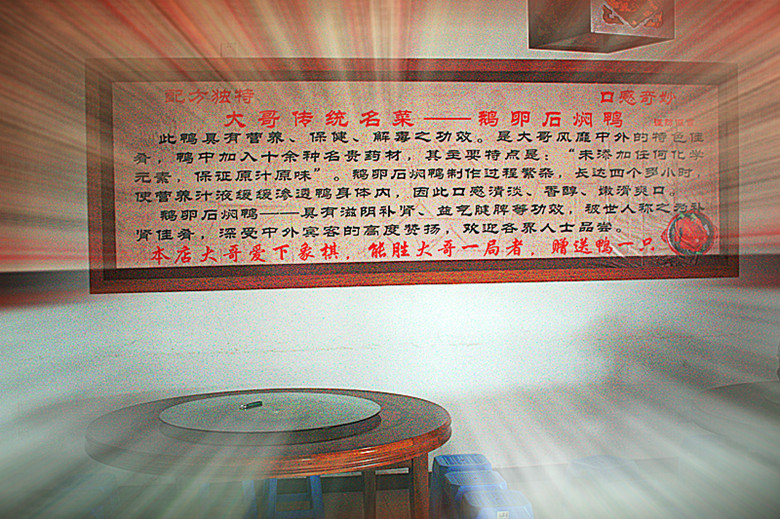 配方独特 口感奇妙
大哥传统名菜——鹅卵石焖鸭
此鸭具有营养、保健、解毒之功效。是大哥风靡中外的特色佳
肴，鸭中加入十余种名贵药材，其主要特点是：“未添加任何化学
元素，保证原汁原味”。鹅卵石焖鸭制作过程繁杂，长达四个多小时，
使营养汁液缓缓渗透鸭身体内，因此口感清淡、香醇、嫩滑爽口。
鹅卵石焖鸭——具有滋阴补肾、益气健脾等功效，被世人称之为补
肾佳肴，深受中外宾客的高度赞扬，欢迎各界人士品尝。
本店大哥爱下象棋，能胜大哥一局者，赠送鸭一只